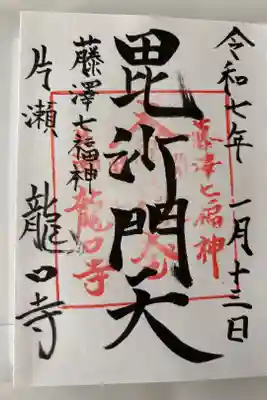 令和七年 一月十三日
藤澤七福神
毘沙門天
藤澤七福神
龍口寺
片瀬 龍口寺